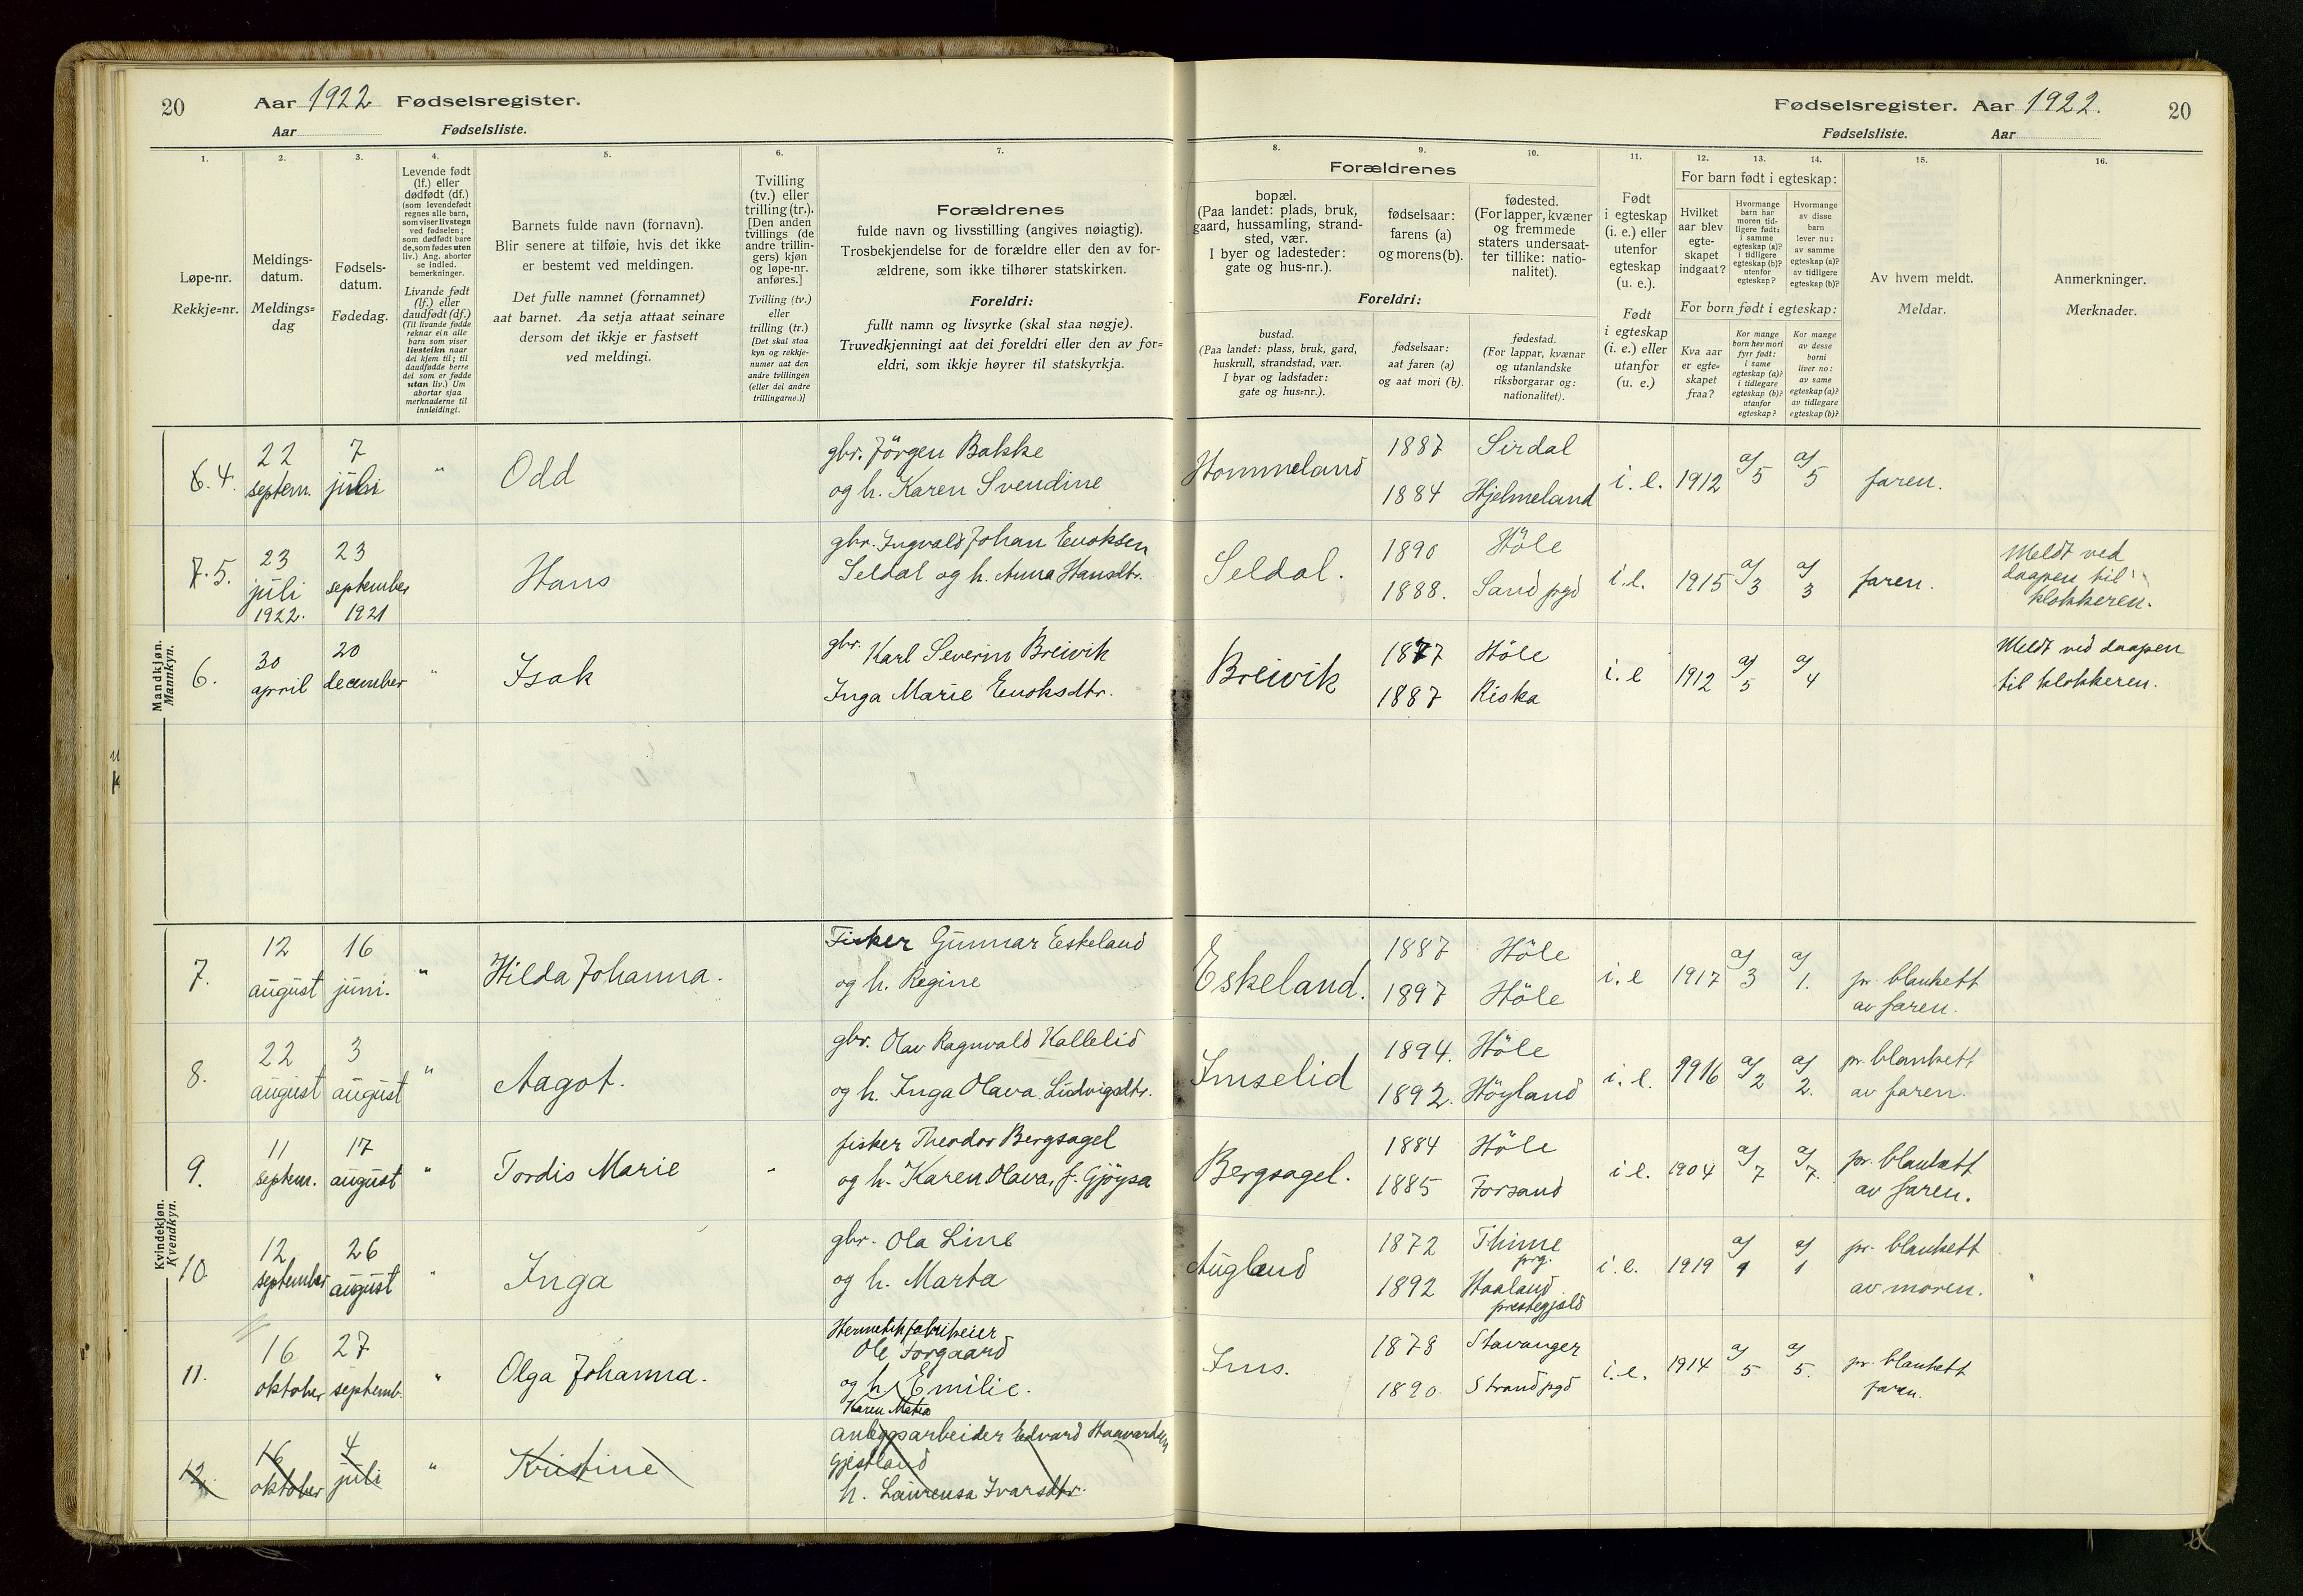 20 Aar 1922 Fødselsregister.
Aar Fødselsliste.
Fødselsregister. Aar 1922. 20
Fødselsliste. Aar
1.
Løpe-nr.
Rekkje=nr.
2.
Meldings-
datum.
Meldings=
dag
3.
Fødsels-
datum.
Fødedag.
4.
Levende født
(lf.) eller
dødfødt (df.)
(som levendefødt
regnes alle barn,
som viser livstegn
ved fødselen;
som dødfødt bare
de, som fødes uten
liv.) Ang. aborter
se indled.
bemerkninger.
Livande født
(lf.) eller
daudfødt (df.)
(Til livande fødde
reknar ein alle
barn som viser
livsteikn naar
dei kjem til; til
daudfødde berre
dei som er fødde
utan liv.) Um
abortar sjaa
merknaderne til
innleidingi.
5.
Barnets fulde navn (fornavn).
Blir senere at tilføie, hvis det ikke
er bestemt ved meldingen.
Det fulle namnet (fornamnet)
aat barnet. Aa setja attaat seinare
dersom det ikkje er fastsett
ved meldingi.
6.
Tvilling
(tv.) eller
trilling (tr.).
[Den anden
tvillings (de
andre trillin-
gers) kjøn
og løpe-nr.
anføres.]
Tvilling (tv.)
eller
trilling (tr.)
[Det skal staa
kyn og rekkje-
numer aat den
andre tvillingen
(eller dei andre
trillingarne.)]
7.
Forældrenes
fulde navn og livsstilling (angives nøiagtig).
Trosbekjendelse for de forældre eller den av for-
ældrene, som ikke tilhører statskirken.
Foreldri:
fullt namn og livsyrke (skal staa nøgje).
Truvedkjenningi aat dei foreldri eller den av for=
eldri, som ikkje høyrer til statskyrkja.
8.
Forældrenes
bopæl.
(Paa landet: plads, bruk,
gaard, hussamling, strand-
sted, vær.
I byer og ladesteder:
gate og hus-nr.).
Foreldri:
bustad.
(Paa landet: plass, bruk, gard,
huskrull, strandstad, vær.
I byar og ladstader:
gate og hus=nr.).
9.
fødselsaar:
farens (a)
og morens (b).
fødselsaar:
aat faren (a)
og aat mori (b).
10.
fødested.
(For lapper, kvæner
og fremmede
staters undersaat-
ter tillike: natio-
nalitet).
fødestad.
(For lappar, kvænar
og utanlandske
riksborgarar og:
nationalitet).
11.
Født
i egteskap
(i. e.) eller
utenfor
egteskap
(u. e.).
Født
i egteskap
(i. e.) eller
utanfor
(u. e.)
12. 13. 14.
For barn født i egteskap:
Hvilket
aar blev
egte-
skapet
indgaat?
Hvormange
barn har
moren tid-
ligere født:
i samme
egteskap (a)?
i tidligere
egteskap (b)?
utenfor
egteskap?
Hvormange
av disse
barn
lever nu:
av samme
egteskap (a)?
av tidligere
egteskap (b)?
For born født i egteskap:
Kva aar
er egte=
skapet
fraa?
Kor mange
born hev mori
fyrr født:
i same
egteskap (a)?
i tidlegare
egteskap (b)?
utanfor
egteskap?
Kor mange
av desse
borni
liver no:
av same
egteskap (a)?
av tidlegare
egteskap (b)?
15.
Av hvem meldt.
Meldar.
16.
Anmerkninger.
Merknader.
Mandkjøn.
Mannkyn.
6. 4. 22 septem. 7 juli " Odd
gbr. Jörgen Bakke
og h. Karen Svendine
Hommeland 1887 Sirdal
1884 Hjelmeland i. e. 1912 a/5 a/5 faren.
7. 5. 23 juli 1922. 23 september 1921 Hans
gbr. Ingvald Johan Enoksen
Seldal og h. Anna Hansdtr.
Seldal. 1890 Höle
1888. Sand pgd i.e. 1915 a/3 a/3 faren.
Meldt ved
daapen til
klokkeren.
6. 30 april 20 december " Isak
gbr. Karl Severin Breivik
Inga Marie Enoksdtr.
Breivik 1877 Höle
1887 Riska i. e 1912 a/5 a/4
Meldt ved daapen
til klokkeren.
Kvindekjøn.
Kvendkyn.
7. 12 august 16 juni. " Hilda Johanna.
Fisker Gunnar Eskeland
og h. Regine
Eskeland. 1887 Höle
1897 Höle i. e 1917 a/3 a/1.
pr. blankett
av faren.
8. 22 august 3 august " Aagot.
gbr. Olav Ragnvald Kallelid
og h. Inga Olava Ludvigsdtr.
Imselid 1894. Höle
1892. Höyland i. e. 1916 a/2 a/2.
pr. blankett
av faren.
9. 11 septem. 17 august " Tordis Marie "
fisker Theodor Bergsagel
og h. Karen Olava, f. Gjöysa
Bergsagel. 1884 Höle
1885 Forsand i e. 1904 a/7 a/7.
pr. blankett
av faren.
10. 12 september 26 august " Inga
gbr. Ola Line
og h. Marta
Augland 1872 Thime prg.
1892 Haaland prestegjeld i. e. 1919 a/1 a/1
pr. blankett
av moren.
11. 16 oktober 27 septemb. " Olga Johanna.
Hermetikfabrikeier
Ole Torgaard
og h. Emilie.
Karen Matea
Ims. 1878 Stavanger
1890. Strand pgd i. e. 1914 a/5 a/5.
pr. blankett
faren.
12. 16 oktober 4 juli " Kristine
anlegsarbeider Edvard Haavardsen
Gjestland
h. Laurensa Ivarsdtr.